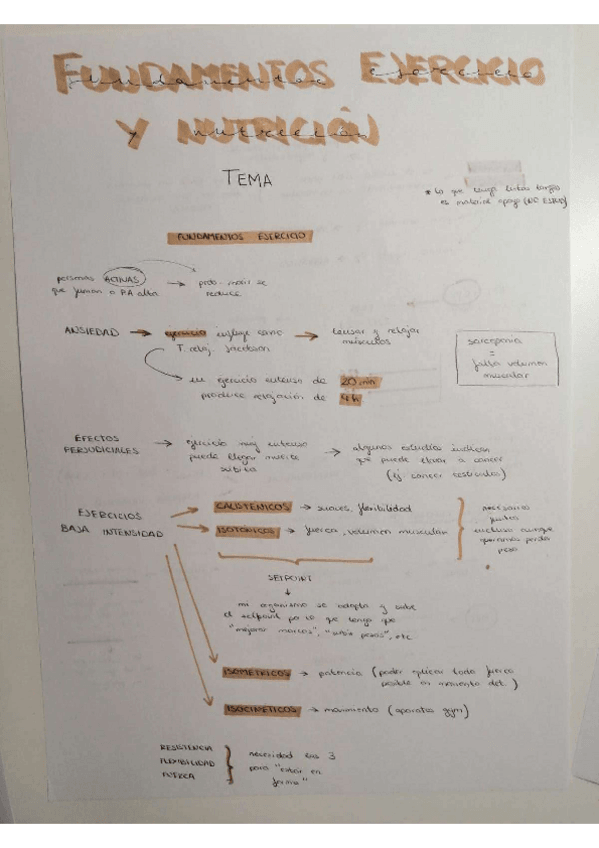 FUNDAMENTOS EJERCICIO
fundamentos ejercicio
Y NUTRICIÓN
nutrición
TEMA
* Lo que tenga estas
es material apoyo (NO ESTUD)
FUNDAMENTOS EJERCICIO
personas ACTIVAS → prob. morir se
que fuman o PA alta reduce
ANSIEDAD → ejercicio influye como → tensar y relajar
T. relaj. Jacobson músculos
sarcopenia
=
falta volumen
muscular
→ un ejercicio intenso de 20 min
produce relajación de 4h
EFECTOS
PERJUDICIALES → ejercicio muy intenso
puede llegar muerte
súbita
→ algunos estudios indican
que puede llevar a cancer
(ej cancer testículos)
EJERCICIOS
BAJA INTENSIDAD
CALISTENICOS → suaves, flexibilidad
ISOTÓNICOS → fuerza, volumen muscular
necesarios
juntos
incluso aunque
queramos perder
peso
SETPOINT
↓
mi organismo se adapta y sube
el setpoint por lo que tengo que
"mejorar marcas", "subir pesas", etc
ISOMETRICOS → potencia (poder aplicar toda fuerza
posible en momento det.)
ISOCINETICOS → movimiento (aparatos gym)
RESISTENCIA
FLEXIBILIDAD
FUERZA
necesidad las 3
para "estar en
forma"